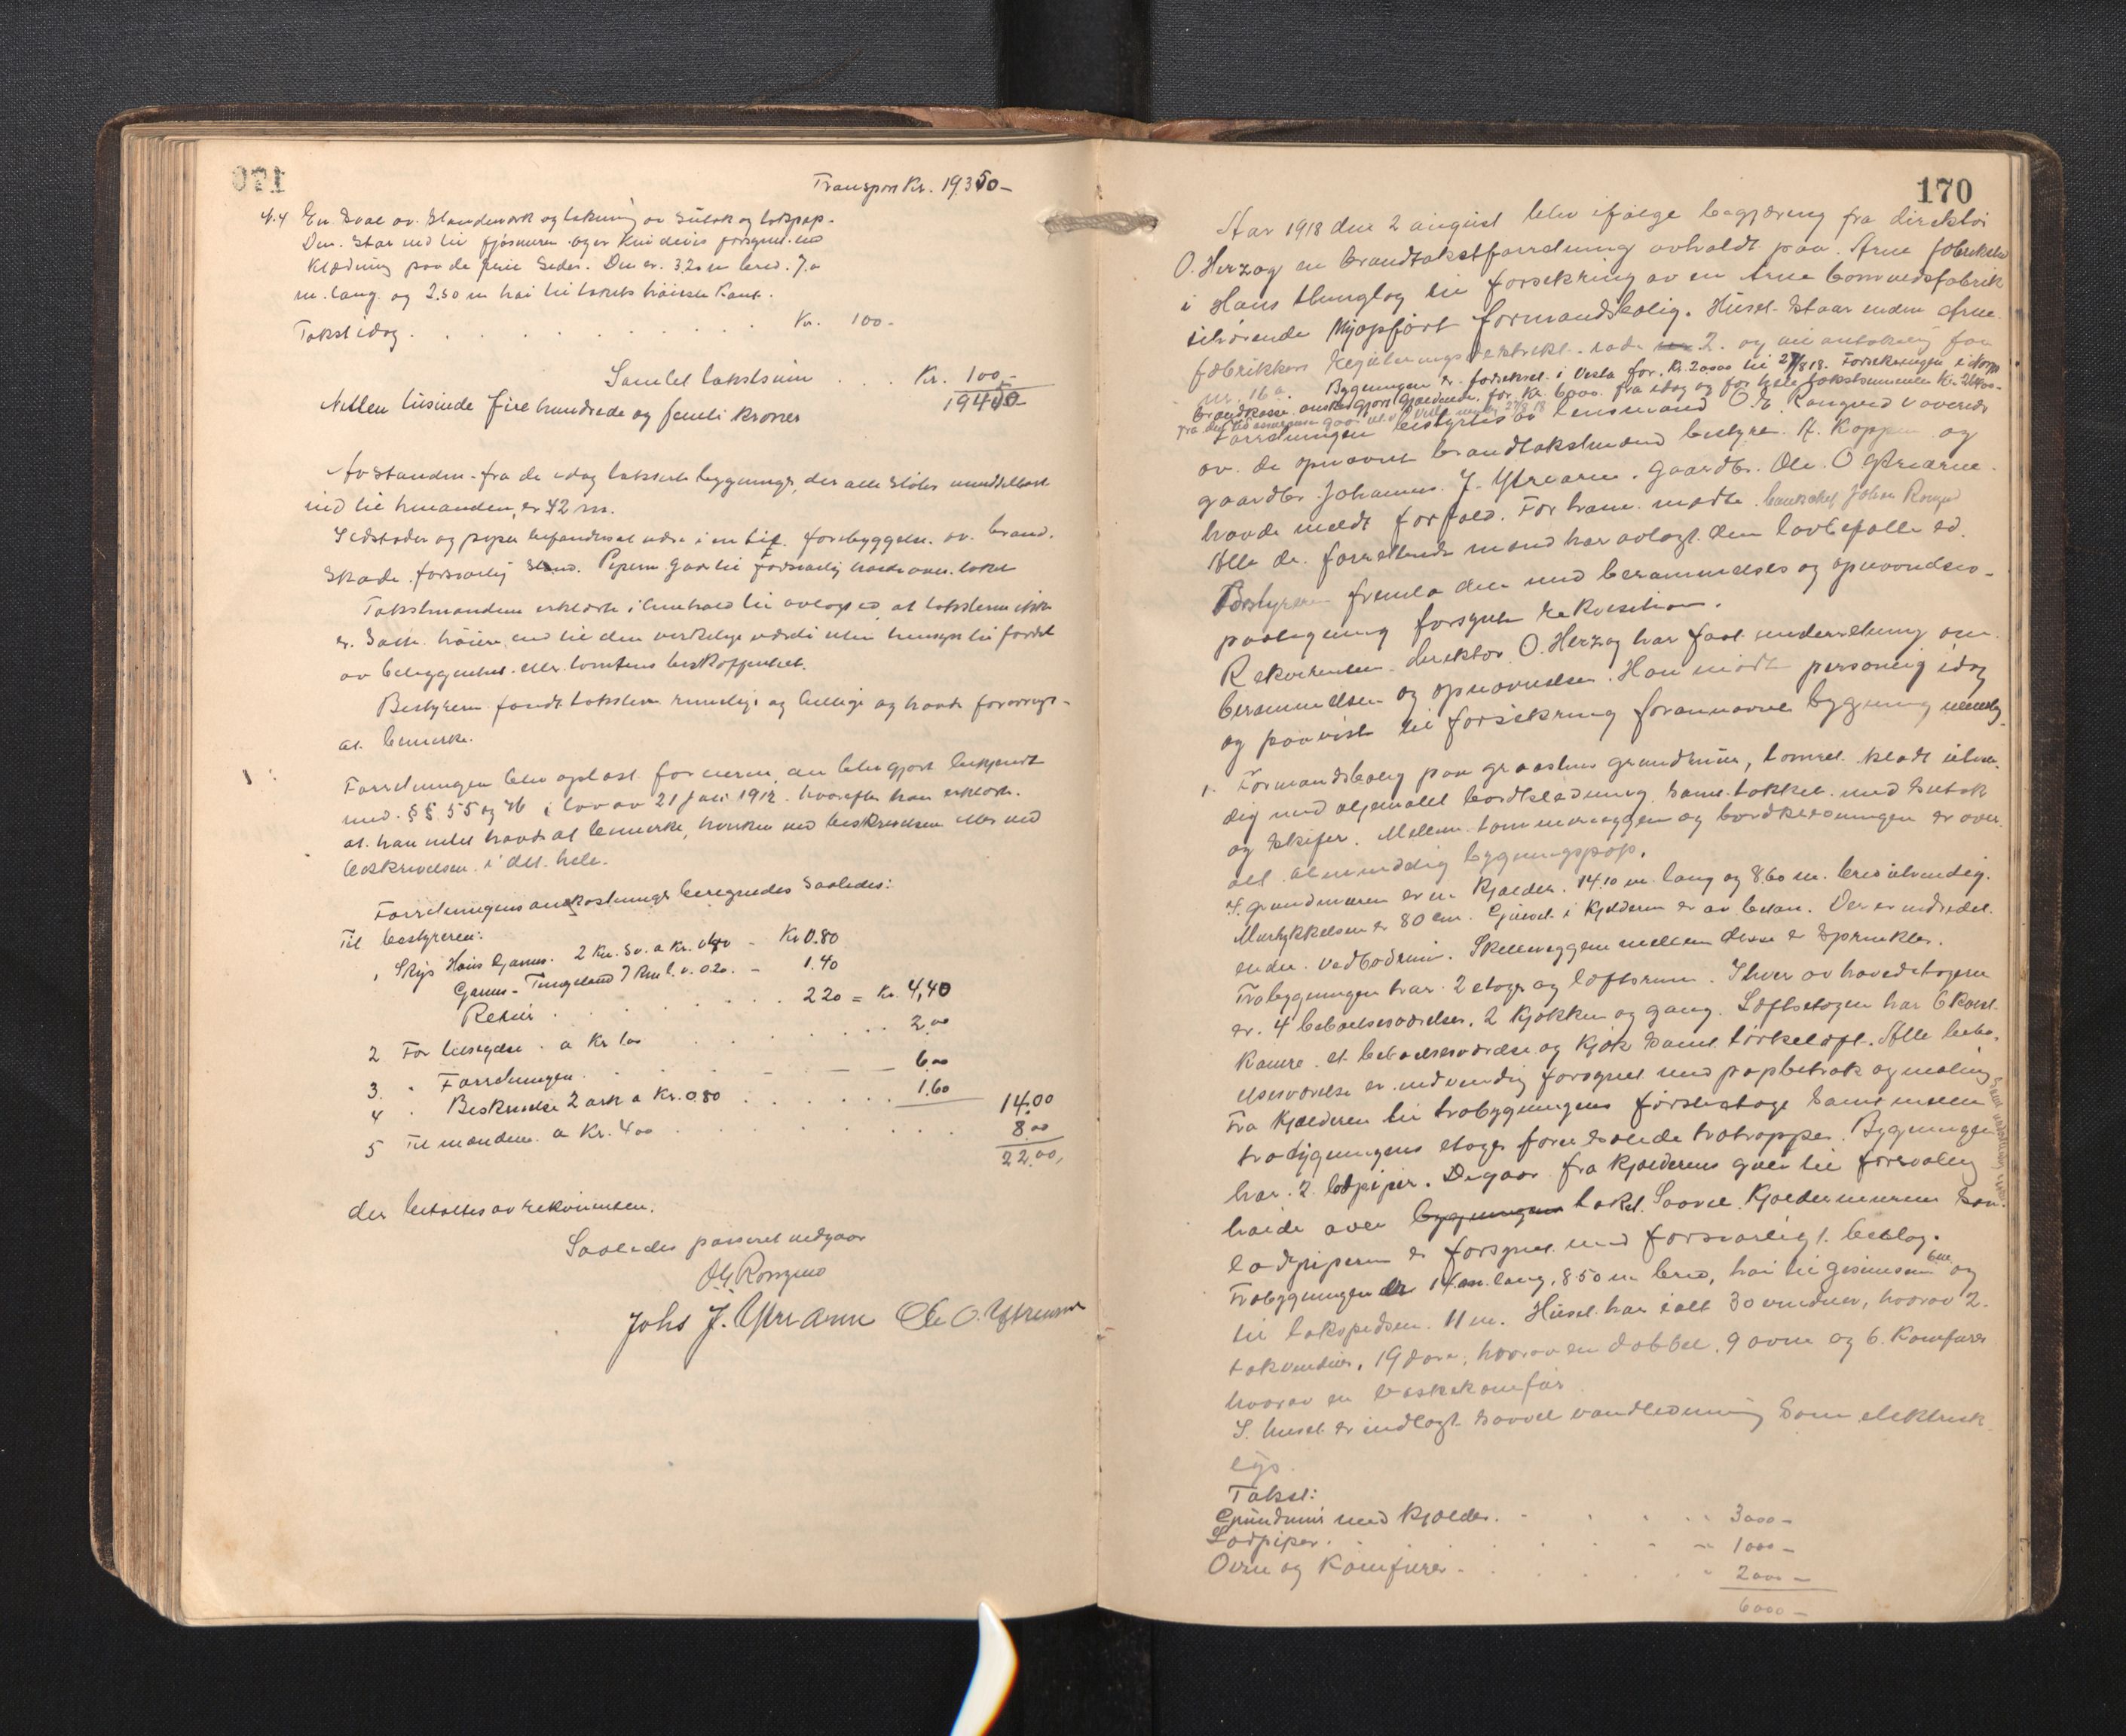 Transport Kr. 19350-
N. 4 En Sval av Standerverk og tekning av Sutak og takpap.
Den Staar ind til fjösmuren og er kun delvis forsynt med
Klædning paa de frie Sider. Den er 3.20 m bred. 7.0
m. lang og 2.50 m höi til takets höieste Kant.
Takst idag . . . Kr. 100.-
Samlet takstsum . . . Kr. 100-
19450-
Nitten tusinde fire hundrede og femti kroner
Avstanden fra de idag takserte bygninger, der alle Støter umiddelbart
ind til hinanden, er 42 m.
Ildsteder og piper befandtes at være i en til forebyggelse av brand-
skade forsvarlig Stand. Piperne gaar til forsvarlig høide over taket
Takstmændene erklærte i henhold til avlagt ed at taksterne ikke
er Satte høiere end til den virkelige værdi uten hensyn til fordel
av beliggenhet eller tomtens beskaffenhet.
Bestyreren fandt taksterne rimelige og billige og havde forøvrigt
at bemerke.
Forretningen blev oplæst for eieren, der blev gjort bekjendt
med §§ 55 og 76 i lov av 21 juli 1912 hvorefter han erklærte
at han intet havde at bemerke, hverken ved beskrivelsen eller ved
beskrivelsen i det hele.
Forretningens omkostninger beregnedes Saaledes:
Til bestyreren:
1 Skys Haus Garnes 2 Km. Sv. a Kr. 0.40 - Kr 0.80
Garnes - Tengeland 7 Km l. v. 0.20 - 1.40
Retur . . . 2 20 = Kr. 4,40
2 For tilsigelse a Kr 1.00 . . . 2.00
3 " Forretningen . . . 6.00
4 " Beskrivelse 2 ark a Kr. 0.80 . . . 1.60
14.00
5 Til mændene a Kr. 4.00 . . . 8.00
22.00,
der betaltes av rekvirenten.
Saaledes passeret vedgaar
Johs J. Ytre Arne Ole O. Ytrearne
170
Aar 1918 den 2 august blev ifølge begjæring fra direktør
O. Herzog en brandtakstforretning avholdt paa Arne fabrikker
i Haus thinglag til forsikring av en Arne Bomuldsfabrik
tilhørende Nyopført formandsbolig. Huset Staar under Arne
fabrikkers Reguleringsdistrikt rode 2. og vil antagelig faa
nr. 16a. Bygningen er forsikret i Vesta for Kr. 20000 til 27/8 18. Forsikringen i Norges
Forretningen bestyrtes av lensmand
av de opnævnte brandtakstmænd bestyrer A. Koppen og
gaardbr. Johannes J. Ytrearne. Gaardbr. Ole O Ytrearne
havde meldt forfald. For ham møtte
Alle de forrettende mænd har avlagt den lovbefalte ed.
Bestyreren fremla den med berammelses og opnævnelses-
paategning forsynte rekvisition.
Rekvirenten direktør O. Herzog har faat underretning om
berammelsen og opnævnelsen. Han møtte personlig idag
og paaviste til forsikring forannævnte bygning nemlig
1. Formandsbolig paa graastens grundmur, tømret klædt utven-
dig med oljemalet bordklædning samt tækket med Sutak
og Skifer. Mellem tømmervæggen og bordklædningen er over-
alt almindelig bygningspap.
I grundmuren er en Kjælder. 14.10 m. lang og 8.60 m. bred utvendig.
Murtykkelsen er 80 cm. Gulvet i Kjælderen er av beton. Der er indredet
endn. vedbodrum. Skillevæggene mellem disse er Sprinkler.
Træbygningen har 2 etager og loftsrum. I hver av hovedetagerne
er 4 beboelsesværelser, 2 Kjøkken og gang. Loftsetagen har 6 Kvist-
kamre et beboelsesværelse og Kjøk samt törkeloft. Alle bebo-
elsesværelse er indvendig forsynet med papbetræk og maling
Fra Kjælderen til træbygningens förste etage Samt mellem
træbygningens etager fører solide trætrapper. Bygningen
har 2 lodpiper. De gaar fra Kjælderens gulv til forsvarlig
høide over taket. Saavel Kjældermuren Som
lodpiperne er forsynet med forsvarlig beslag.
Træbygningen er 14 m. lang, 8.50 m bred, höi til gesimsen 6 m og
til takspidsen 11 m. Huset har ialt 30 vinduer, hvorav 2
takvinduer, 19 døre, hvorav en dobbel, 9 ovne og 6 Komfurer
hvorav en vaskekomfur
I huset er indlagt saavel vandledning Som elektrisk
lys.
Takst:
Grundmur med Kjælder . . . 3000-
Lodpiper . . . 1000-
Ovne og Komfurer . . . 2000-
6000-